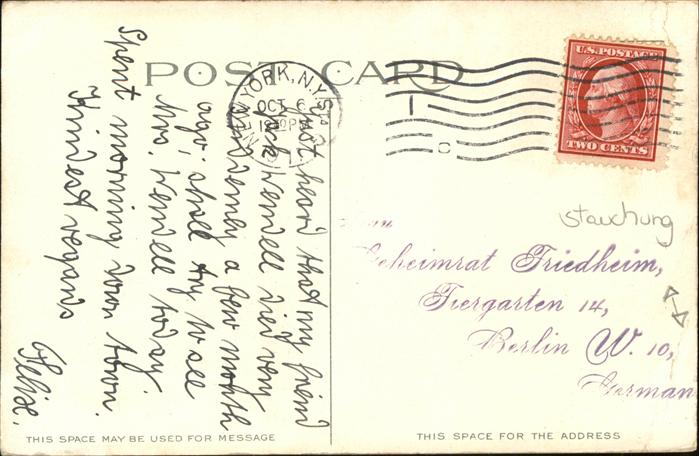 POST CARD
NEW YORK, N.Y. STA
OCT 6
12 30 P
11
C
U.S. POSTAGE
TWO CENTS
Just heard that my friend
Wendell died very
suddenly a few month
ago; shall try to see
Mrs. Wendell today.
Spent morning down town.
Kindest regards
Felix.
stauchung
Geheimrat Friedheim,
Tiergarten 14,
Berlin W. 10,
German
THIS SPACE MAY BE USED FOR MESSAGE
THIS SPACE FOR THE ADDRESS